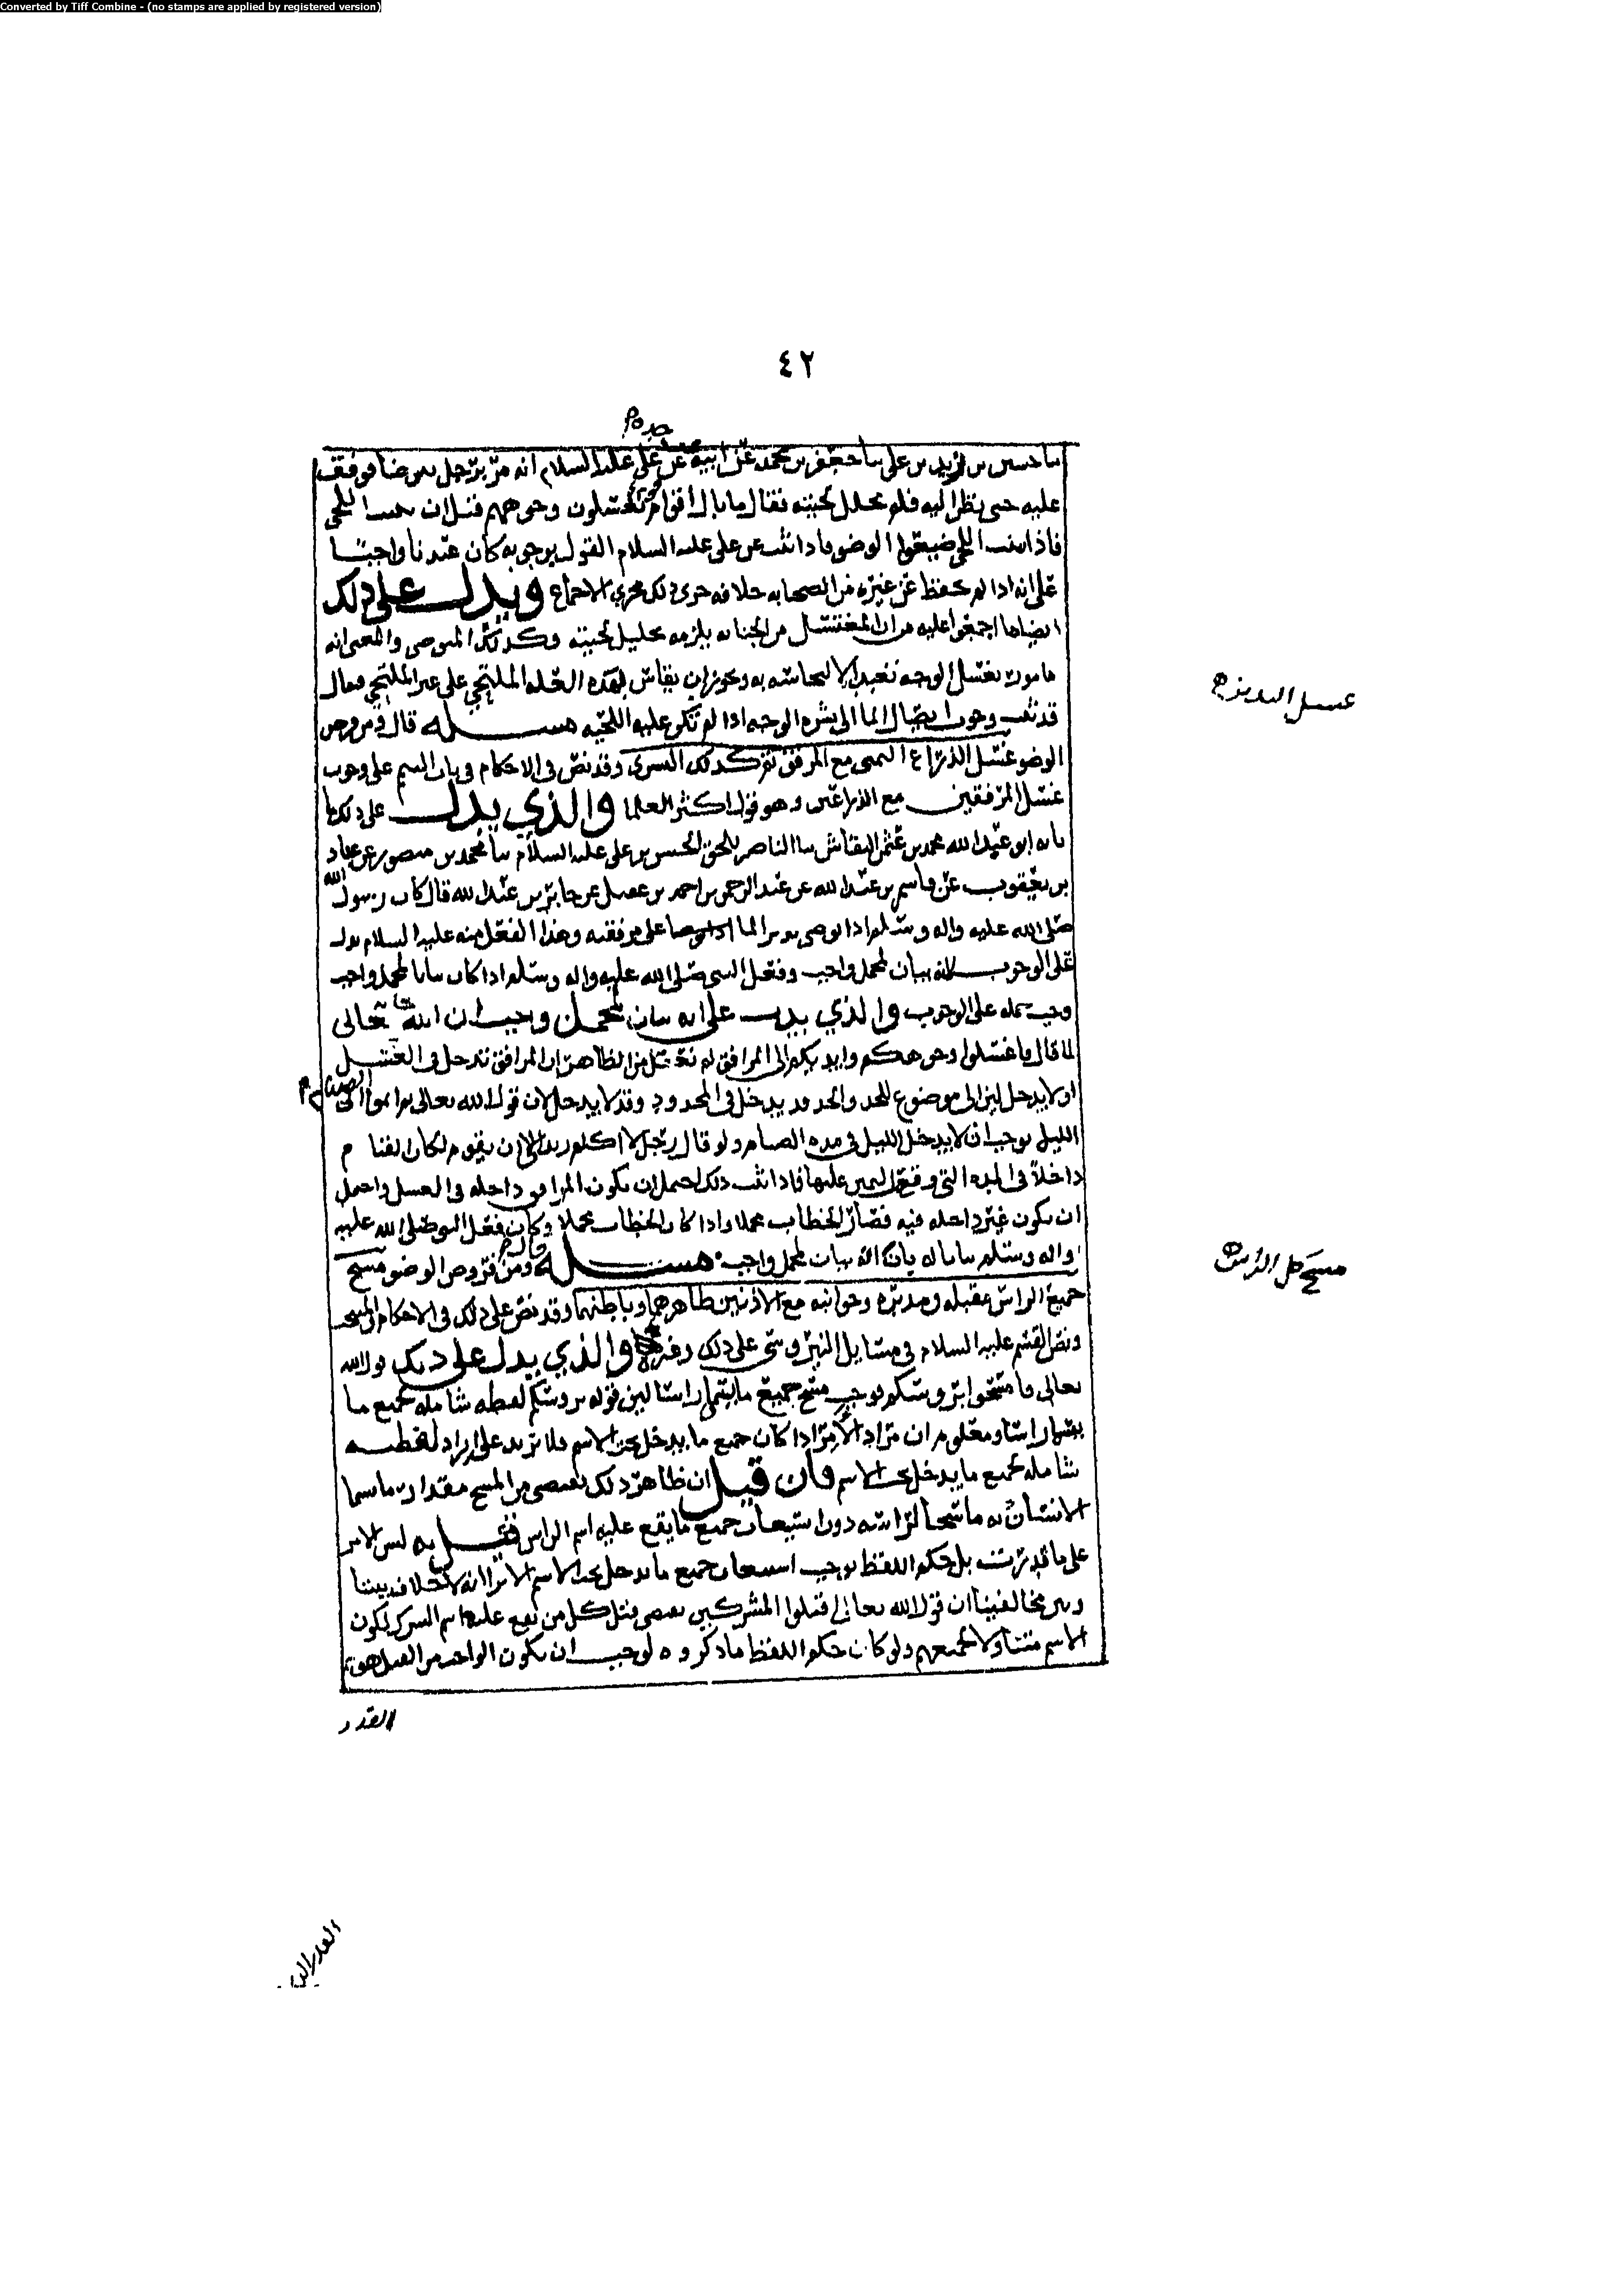 Converted by Tiff Combine - (no stamps are applied by registered version)
٤٢
جده
حسين بن زيد بن علي جعفر بن محمد عن ابيه عن علي عليه السلام انه مر برجل يتوضا فوقف
عليه حتى نظر اليه فلم يخلل لحيته فقال ما بال اقوام يغسلون وجوههم قبل ان اللحى
فاذا اللحى ضيعوا الوضو فاذا ثبت عن علي عليه السلام القول بوجوبه كان عندنا واجبا
على انه اذا لم يحفظ عن غيره من الصحابه خلافه جرى ذلك مجرى الاجماع ويدل على ذلك
ايضا ما اجمعوا عليه من ان المغتسل من الجنابه يلزمه تخليل لحيته وكذلك المتوضي والمعنى انه
مامور بغسل الوجه تعبدا لا لنجاسته به ويجوز ان يقاس بهذه العله الملتحي على غير الملتحي فيقال
قد ثبت وجوب ايصال الما الى بشره الوجه اذا لم تكن عليه اللحيه مسئله قال ومن فروض
الوضو غسل الذراع اليمنى مع المرفق ثم كذلك اليسرى وقد نص في الاحكام في باب التيمم على وجوب
غسل المرفقين مع الذراعين وهو قول اكثر العلما والذي يدل على ذلك ما
به ابو عبد الله محمد بن عثمن النقاش الناصر للحق الحسن بن علي عليه السلام محمد بن منصور عن عباد
بن يعقوب عن قاسم بن عبد الله عن عبد الرحمن بن احمد بن عقيل عن جابر بن عبد الله قال كان رسول الله
صلى الله عليه واله وسلم اذا توضى يدير الما على مرفقيه وهذا الفعل منه عليه السلام يدل
على الوجوب لانه بيان لمجمل واجب وفعل النبي صلى الله عليه واله وسلم اذا كان بيانا لمجمل واجب
وجب حمله على الوجوب والذي يدل على انه بيان لمجمل واجب ان الله تعالى
لما قال فاغسلوا وجوهكم وايديكم الى المرافق لم نعقل من الظاهر ان المرافق تدخل في الغسل
او لا يدخل لان الى موضوع للحد والحد قد يدخل في المحدود وقد لا يدخل لان قول الله تعالى ثم اتموا الصيام الى
الليل يوجب ان لا يدخل الليل في مده الصيام ولو قال رجل لا اكلم زيدا الى ان يقوم لكان القيام
داخلا في المده التي وقع اليمين عليها فاذا ثبت ذلك احتمل ان يكون المرافق داخله في الغسل واحتمل
ان يكون غير داخله فيه فصار الخطاب مجملا واذا كان الخطاب مجملا وكان فعل النبي صلى الله عليه
واله وسلم بيانا له بان انه بيان لمجمل واجب مسئله قال ومن فروض الوضو مسح
جميع الراس مقبله ومدبره وجوانبه مع الاذنين ظاهرهما وباطنهما وقد نص على ذلك في الاحكام
ونص القسم عليه السلام في مسايل النيروسي على ذلك والذي يدل على ذلك قول الله
تعالى فامسحوا برؤسكم يوجب مسح جميع ما يسمى راسا لان قوله برؤسكم لفظه شامله لجميع ما
يسمى راسا ومعلوم ان مراد الامر اذا كان جميع ما يدخل تحت الاسم فلا يزيد على ايراد لفظه
شامله لجميع ما يدخل تحت الاسم فان قيل ان ظاهر ذلك يقتضي من المسح مقدار ما يسمى
الانسان به ماسحا لراسه دون استيعاب جميع ما يقع عليه اسم الراس فقيل له ليس الامر
على ما قدرت بل حكم اللفظ يوجب استيعاب جميع ما يدخل تحت الاسم الا ترا انه لا خلاف بيننا
وبين مخالفينا ان قول الله تعالى اقتلوا المشركين يقتضي قتل كل من يقع عليه اسم الشرك لكون
الاسم متناولا لجميعهم ولو كان حكم اللفظ ما ذكروه لوجب ان يكون الواجب من القتل هو
القدر
غسل اليدين
مسح كل الراس